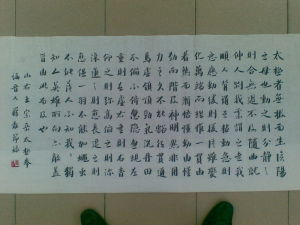 太極者無極而生陰陽
之母也動之則分靜之
則合無過不及隨曲就
伸人剛我柔謂之走我
順人背謂之黏動急則
急應動緩則緩隨雖變
化萬端而理一貫由
着熟而漸悟懂勁由懂
勁而階及神明然非用
力之久不能豁然貫通
焉虛領頂勁氣沉丹田
不偏不倚忽隱忽現左
重則左虛右重則右杳
仰之則彌高俯之則彌
深進之則愈長退之則
愈促一羽不能加蠅蟲
不能落人不知我我獨
知人英雄所向無敵蓋
皆由此而及也
山右王宗岳太極拳
論